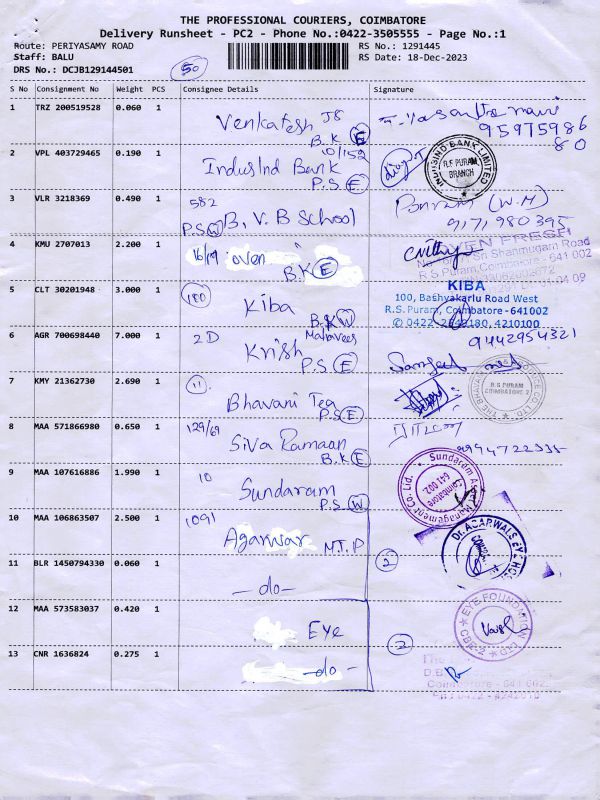 THE PROFESSIONAL COURIERS, COIMBATORE
Delivery Runsheet - PC2 - Phone No.:0422-3505555 - Page No.:1
Route: PERIYASAMY ROAD
RS No.: 1291445
Staff: BALU
RS Date: 18-Dec-2023
DRS No.: DCJB129144501
50
S No Consignment No Weight PCS Consignee Details Signature
1 TRZ 200519528 0.060 1 Venkatesh JS
B.K E
95975986
80
2 VPL 403729465 0.190 1 IndusInd Bank
10/152
P.S E
INDUSIND BANK LIMITED
R.S PURAM
BRANCH
3 VLR 3218369 0.490 1 582
B.V.B School
P.S W
(W.M)
9171980395
4 KMU 2707013 2.200 1 16/19 oven
B.K E
OVEN FRESH
Sri Shanmugam Road
R.S.Puram, Coimbatore - 641 002
5 CLT 30201948 3.000 1 180
Kiba
B.K W
KIBA
100, Bashyakarlu Road West
R.S. Puram, Coimbatore - 641002
✆ 0422 - 2548180, 4210100
6 AGR 700698440 7.000 1 2D
Krish
P.S E
9442954321
7 KMY 21362730 2.690 1 11
Bhavani Tea
P.S E
R.S PURAM
COIMBATORE 2
8 MAA 571866980 0.650 1 129/69
Siva Ramaan
B.K E
9 MAA 107616886 1.990 1 10
Sundaram
P.S W
Sundaram Asset Management Co. Ltd.
Coimbatore
641 002.
10 MAA 106863507 2.500 1 1091
Agarwar
N.T.P
Dr. AGARWALS EYE HOS
11 BLR 1450794330 0.060 1 - do -
2
12 MAA 573583037 0.420 1 Eye
EYE FOUNDATION
CBE-2
2
13 CNR 1636824 0.275 1 - do -
The
D.B.
Coimbatore - 641 002.